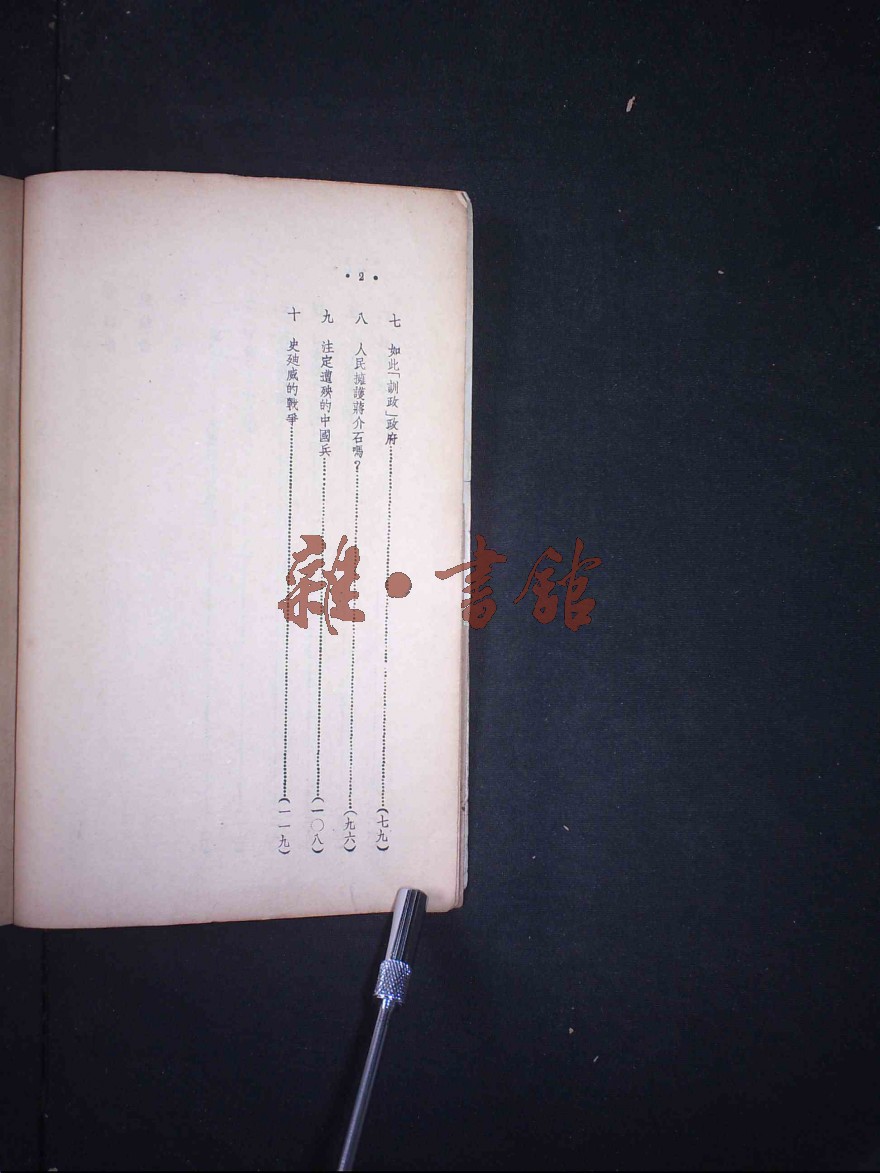 • 2 •
七　如此「訓政」政府……(七九)
八　人民擁護蔣介石嗎？……(九六)
九　注定遭殃的中國兵……(一〇八)
十　史廸威的戰爭……(一一九)
雜•書館